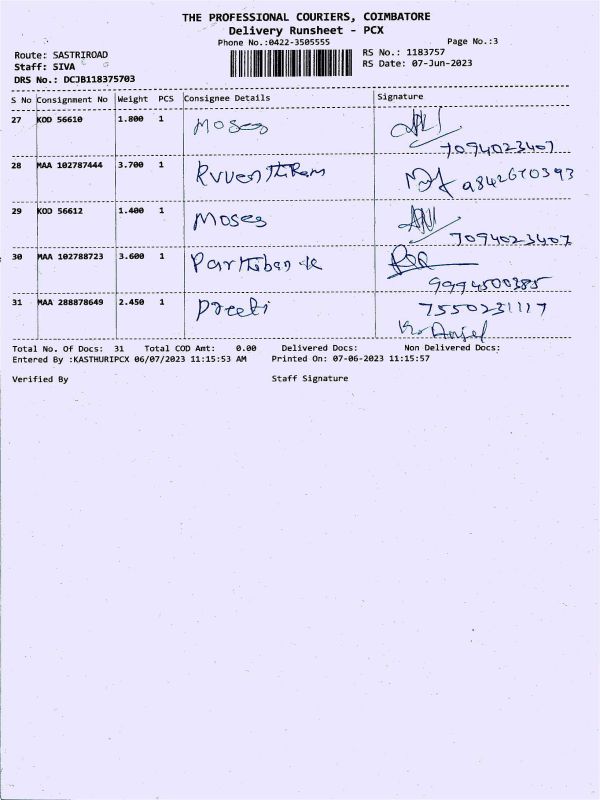 THE PROFESSIONAL COURIERS, COIMBATORE
Delivery Runsheet - PCX
Phone No.:0422-3505555
Page No.:3
Route: SASTRIROAD
RS No.: 1183757
Staff: SIVA
RS Date: 07-Jun-2023
DRS No.: DCJB118375703
S No Consignment No Weight PCS Consignee Details Signature
27 KOD 56610 1.800 1 Moses
7094023407
28 MAA 102787444 3.700 1 9842670393
29 KOD 56612 1.400 1 Moses
7094023407
30 MAA 102788723 3.600 1 Parthiban k
9994500385
31 MAA 288878649 2.450 1 Preeti 7550231117
Total No. Of Docs: 31 Total COD Amt: 0.00 Delivered Docs: Non Delivered Docs:
Entered By :KASTHURIPCX 06/07/2023 11:15:53 AM Printed On: 07-06-2023 11:15:57
Verified By Staff Signature